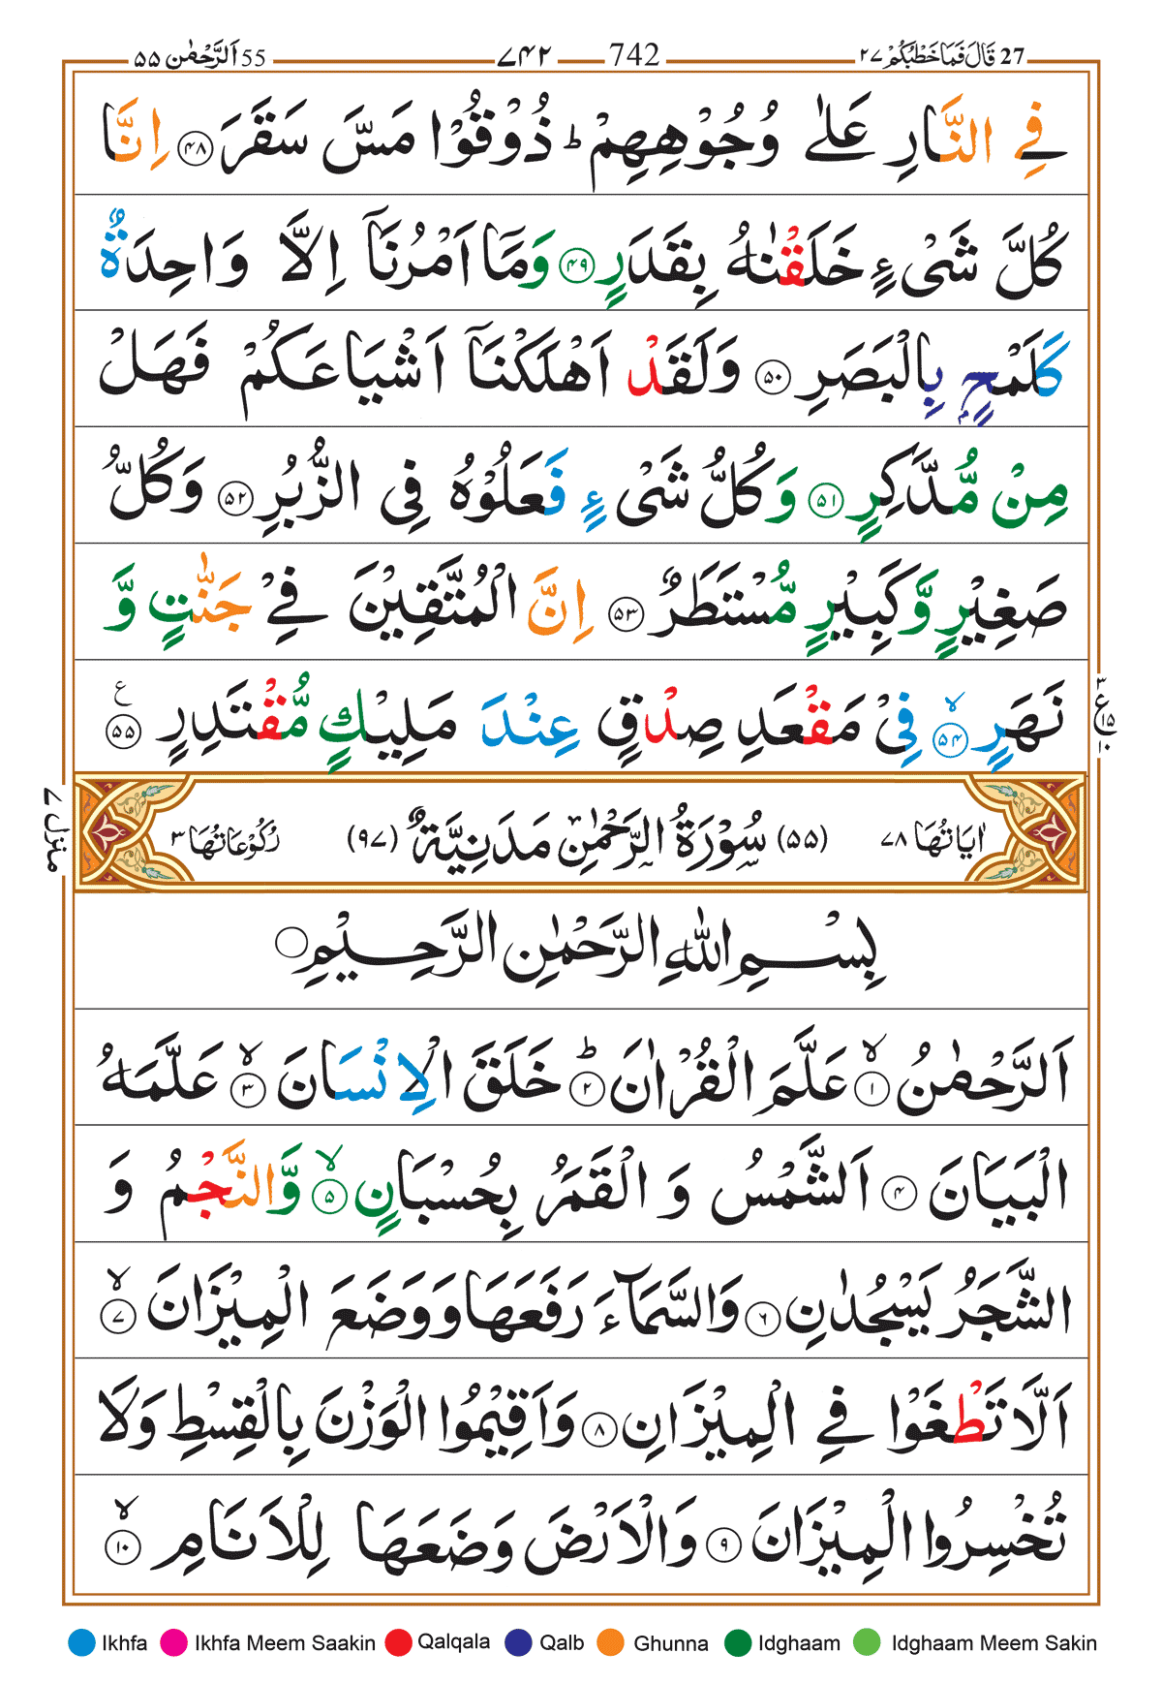 55 اَلرَّحْمٰن ٥٥ 742 ٧٤٢ 27 قَالَ فَمَا خَطْبُكُمْ ٢٧
فِي النَّارِ عَلٰى وُجُوْهِهِمْ ؕ ذُوْقُوْا مَسَّ سَقَرَ ﴿۴۸﴾ اِنَّا
كُلَّ شَىْءٍ خَلَقْنٰهُ بِقَدَرٍ ﴿۴۹﴾ وَمَاۤ اَمْرُنَاۤ اِلَّا وَاحِدَةٌ
كَلَمْحٍۭ بِالْبَصَرِ ﴿۵۰﴾ وَلَقَدْ اَهْلَكْنَاۤ اَشْيَاعَكُمْ فَهَلْ
مِنْ مُّدَّكِرٍ ﴿۵۱﴾ وَكُلُّ شَىْءٍ فَعَلُوْهُ فِى الزُّبُرِ ﴿۵۲﴾ وَكُلُّ
صَغِيْرٍ وَّكَبِيْرٍ مُّسْتَطَرٌ ﴿۵۳﴾ اِنَّ الْمُتَّقِيْنَ فِيْ جَنّٰتٍ وَّ
نَهَرٍ ۙ﴿۵۴﴾ فِىْ مَقْعَدِ صِدْقٍ عِنْدَ مَلِيْكٍ مُّقْتَدِرٍ ﴿۵۵﴾ ع
٣ ع ١٥ ١٠
منزل ٧
اٰيَاتُهَا ٧٨ (٥٥) سُوْرَةُ الرَّحْمٰنِ مَدَنِيَّةٌ (٩٧) رُكُوْعَاتُهَا ٣
بِسْمِ اللّٰهِ الرَّحْمٰنِ الرَّحِيْمِ
اَلرَّحْمٰنُ ۙ﴿۱﴾ عَلَّمَ الْقُرْاٰنَ ؕ﴿۲﴾ خَلَقَ الْاِنْسَانَ ۙ﴿۳﴾ عَلَّمَهُ
الْبَيَانَ ﴿۴﴾ اَلشَّمْسُ وَ الْقَمَرُ بِحُسْبَانٍ ۙ﴿۵﴾ وَّالنَّجْمُ وَ
الشَّجَرُ يَسْجُدٰنِ ﴿۶﴾ وَالسَّمَآءَ رَفَعَهَا وَوَضَعَ الْمِيْزَانَ ۙ﴿۷﴾
اَلَّا تَطْغَوْا فِي الْمِيْزَانِ ﴿۸﴾ وَاَقِيْمُوا الْوَزْنَ بِالْقِسْطِ وَلَا
تُخْسِرُوا الْمِيْزَانَ ﴿۹﴾ وَالْاَرْضَ وَضَعَهَا لِلْاَنَامِ ۙ﴿۱۰﴾
Ikhfa Ikhfa Meem Saakin Qalqala Qalb Ghunna Idghaam Idghaam Meem Sakin